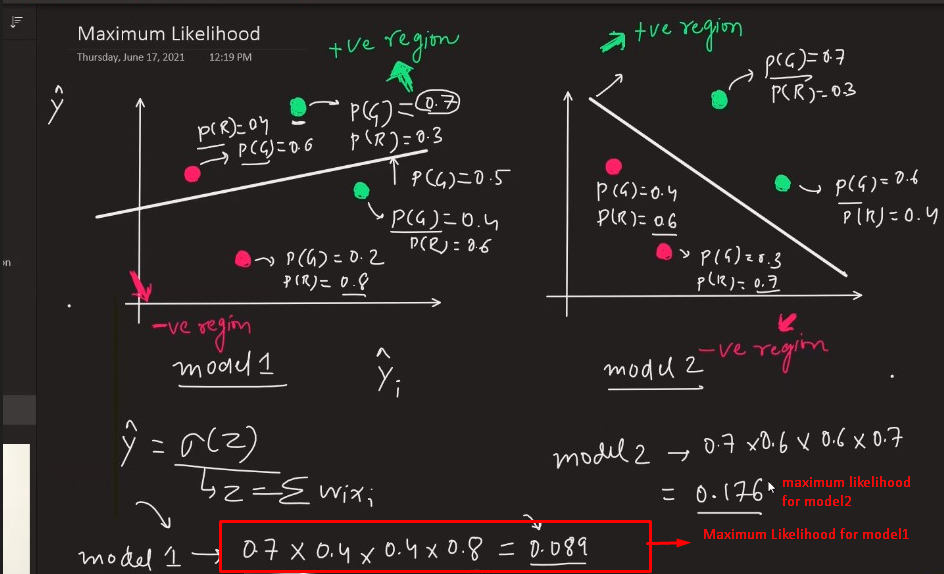 Maximum Likelihood
Thursday, June 17, 2021 12:19 PM
+ve region
Ŷ
P(R)=0.4
P(G)=0.6
P(G)=0.7
P(R)=0.3
P(G)=0.5
P(G)=0.4
P(R)=0.6
P(G)=0.2
P(R)=0.8
-ve region
model 1
Ŷi
+ve region
P(G)=0.7
P(R)=0.3
P(G)=0.4
P(R)=0.6
P(G)=0.6
P(R)=0.4
P(G)=0.3
P(R)=0.7
-ve region
model 2
Ŷ = σ(z)
↳ z = Σ wixi
model 2 → 0.7 x 0.6 x 0.6 x 0.7
= 0.176
maximum likelihood
for model2
model 1 → 0.7 x 0.4 x 0.4 x 0.8 = 0.089
Maximum Likelihood for model1